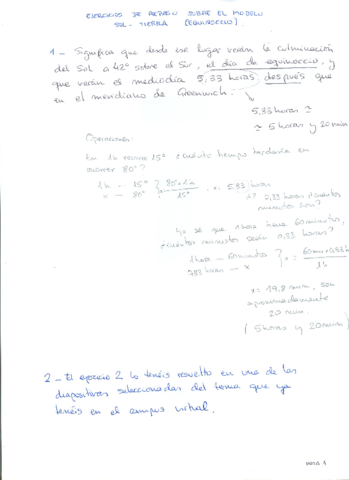 EJERCICIOS DE REPASO SOBRE EL MODELO
SOL - TIERRA (EQUINOCCIO).
1 - Significa que desde ese lugar verán la culminación
del Sol a 42º sobre el Sur, el día de equinoccio, y
que verán el mediodía 5,33 horas después que
en el meridiano de Greenwich.
5,33 horas ≅
≅ 5 horas y 20 min
Operaciones:
En 1h recorre 15º ¿cuánto tiempo tardaría en
recorrer 80º?
1h - 15º
x - 80º
15º
minutos son?
Yo sé que 1 hora tiene 60 minutos,
¿cuántos minutos serán 0,33 horas?
1 hora - 60 minutos
x = 19,8 min, son
aproximadamente
20 min.
(5 horas y 20 min)
2 - El ejercicio 2 lo tenéis resuelto en una de las
diapositivas seleccionadas del tema que ya
tenéis en el campus virtual.